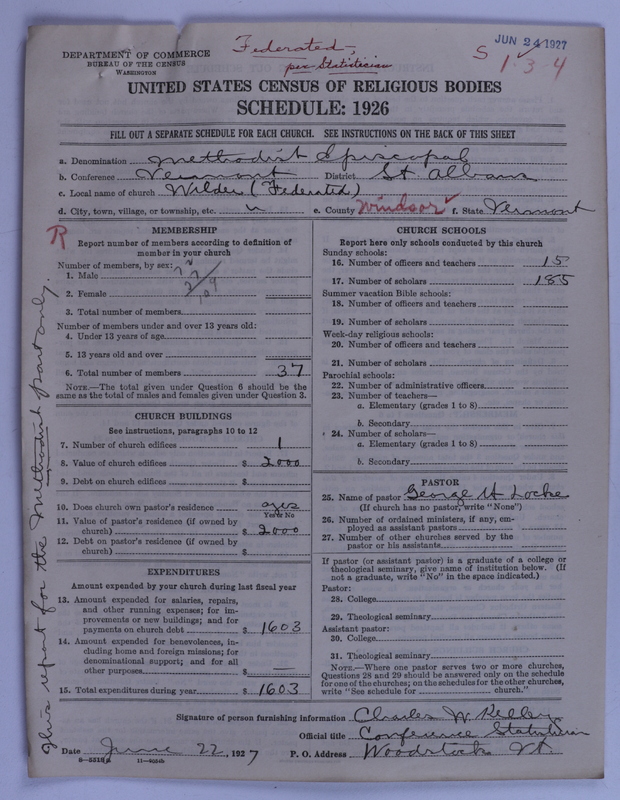 DEPARTMENT OF COMMERCE
BUREAU OF THE CENSUS
WASHINGTON
Federated,
per Statistician
JUN 24 1927
S 1-3-4
UNITED STATES CENSUS OF RELIGIOUS BODIES
SCHEDULE: 1926
FILL OUT A SEPARATE SCHEDULE FOR EACH CHURCH. SEE INSTRUCTIONS ON THE BACK OF THIS SHEET
a. Denomination Methodist Episcopal
b. Conference Vermont District St. Albans
c. Local name of church Wilder (Federated)
d. City, town, village, or township, etc. " e. County Windsor f. State Vermont
R
MEMBERSHIP
Report number of members according to definition of
member in your church
Number of members, by sex:
1. Male
2. Female
3. Total number of members
Number of members under and over 13 years old:
4. Under 13 years of age
5. 13 years old and over
6. Total number of members 37
NOTE.—The total given under Question 6 should be the
same as the total of males and females given under Question 3.
CHURCH BUILDINGS
See instructions, paragraphs 10 to 12
7. Number of church edifices 1
8. Value of church edifices $ 2000
9. Debt on church edifices $
10. Does church own pastor's residence yes
Yes or No
11. Value of pastor's residence (if owned by
church) $ 2000
12. Debt on pastor's residence (if owned by
church) $
EXPENDITURES
Amount expended by your church during last fiscal year
13. Amount expended for salaries, repairs,
and other running expenses; for im-
provements or new buildings; and for
payments on church debt $ 1603
14. Amount expended for benevolences, in-
cluding home and foreign missions; for
denominational support; and for all
other purposes $ —
15. Total expenditures during year $ 1603
CHURCH SCHOOLS
Report here only schools conducted by this church
Sunday schools:
16. Number of officers and teachers 15
17. Number of scholars 185
Summer vacation Bible schools:
18. Number of officers and teachers
19. Number of scholars
Week-day religious schools:
20. Number of officers and teachers
21. Number of scholars
Parochial schools:
22. Number of administrative officers
23. Number of teachers—
a. Elementary (grades 1 to 8)
b. Secondary
24. Number of scholars—
a. Elementary (grades 1 to 8)
b. Secondary
PASTOR
25. Name of pastor George H Locke
(If church has no pastor, write "None")
26. Number of ordained ministers, if any, em-
ployed as assistant pastors
27. Number of other churches served by the
pastor or his assistants
If pastor (or assistant pastor) is a graduate of a college or
theological seminary, give name of institution below. (If
not a graduate, write "No" in the space indicated.)
Pastor:
28. College
29. Theological seminary
Assistant pastor:
30. College
31. Theological seminary
NOTE.—Where one pastor serves two or more churches,
Questions 28 and 29 should be answered only on the schedule
for one of the churches; on the schedules for the other churches,
write "See schedule for church."
Signature of person furnishing information Charles W. Kelley
Official title Conference Statistician
Date June 22, 1927 P. O. Address Woodstock Vt.
This report for the Methodist part only.